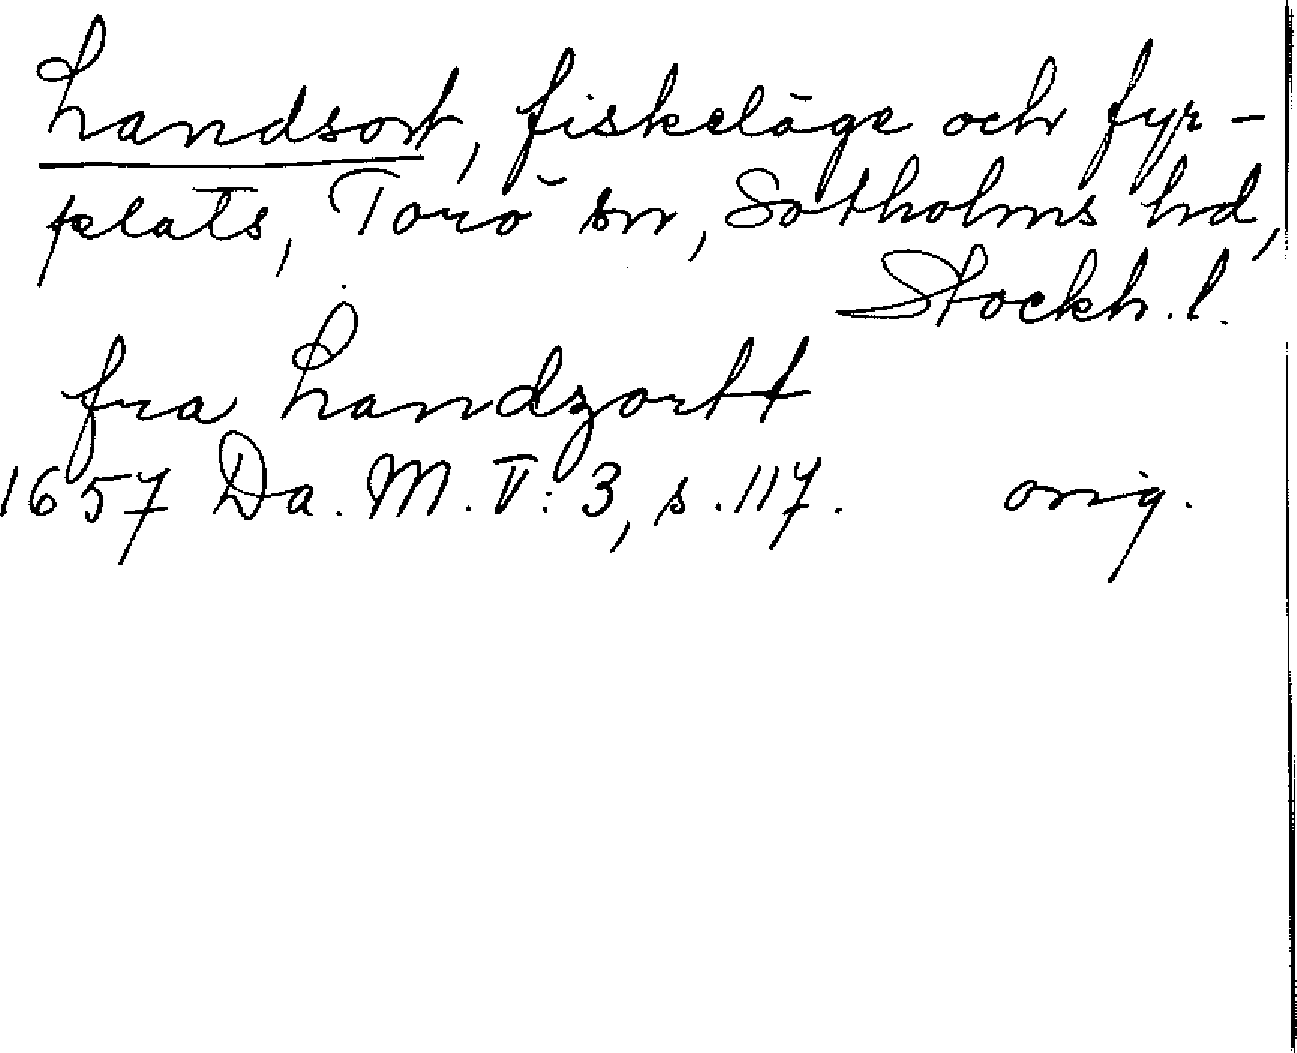 Landsort, fiskeläge och fyr-
plats, Torö sn, Sotholms hd,
Stockh. l.
fra Landzortt
1657 Da. M. V: 3, s. 117. orig.